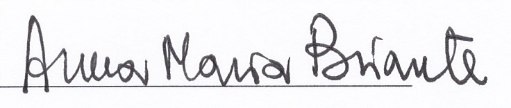 Anna Maria Briante